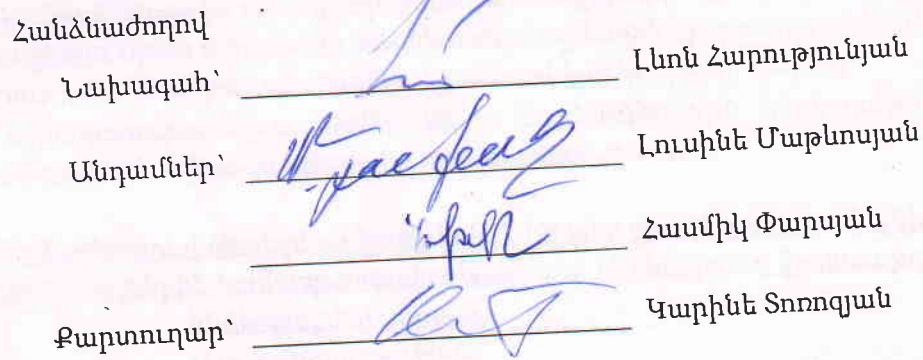 Հանձնաժողով
Նախագահ՝ Լևոն Հարությունյան
Անդամներ՝ Լուսինե Մաթևոսյան
Հասմիկ Փարսյան
Քարտուղար՝ Կարինե Տոռոզյան